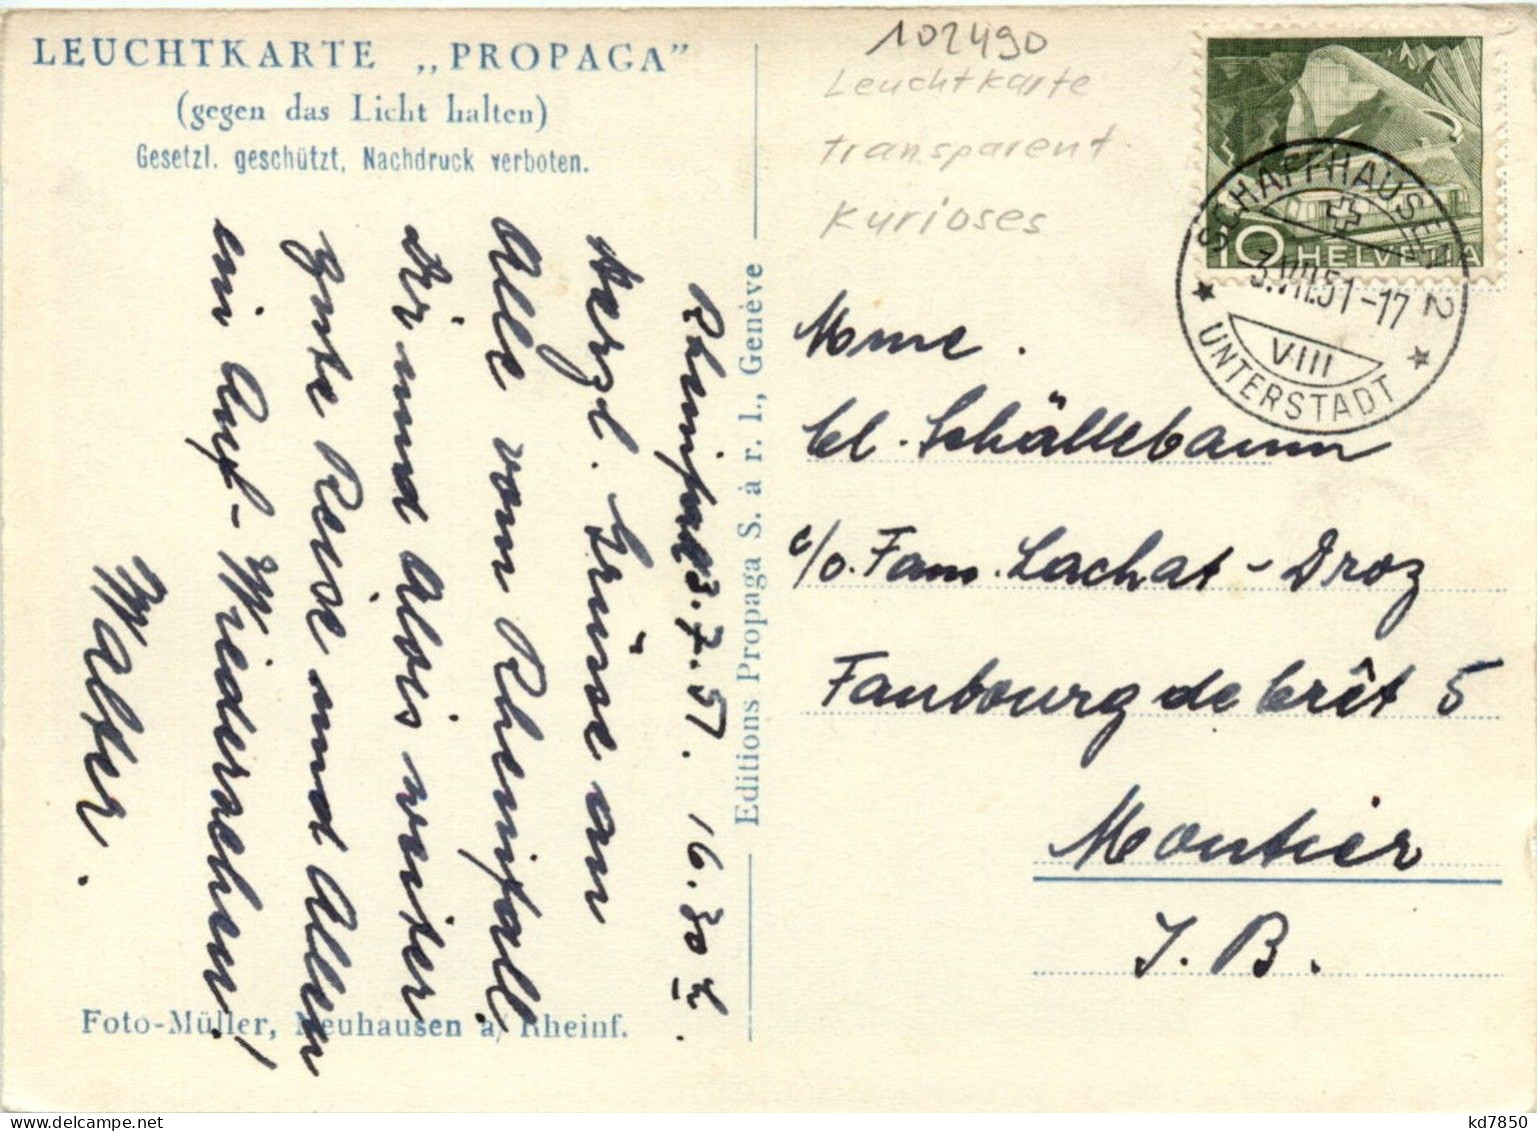 LEUCHTKARTE „PROPAGA”
(gegen das Licht halten)
Gesetzl. geschützt, Nachdruck verboten.
102490
Leuchtkarte
transparent
Kurioses
10 HELVETIA
SCHAFFHAUSEN 2
3.VII.51-17
VIII
UNTERSTADT
Rheinfall 3.7.51. 16.30 h.
Herzl. Grüsse an
Alle vom Rheinfall.
Dir und Alois weiter
Gute Reise und Allen
ein Auf-Wiedersehen!
Walter.
Editions Propaga S. à r. l., Genève
Foto-Müller, Neuhausen a/ Rheinf.
Mme.
Cl. Schällebaum
c/o. Fam. Lachat-Droz
Faubourg de Crêt 5
Moutier
J. B.
kd7850